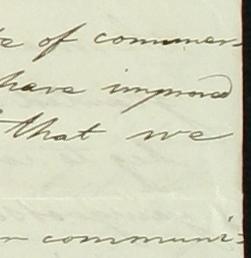 of commer-
have improved
that we
communi-